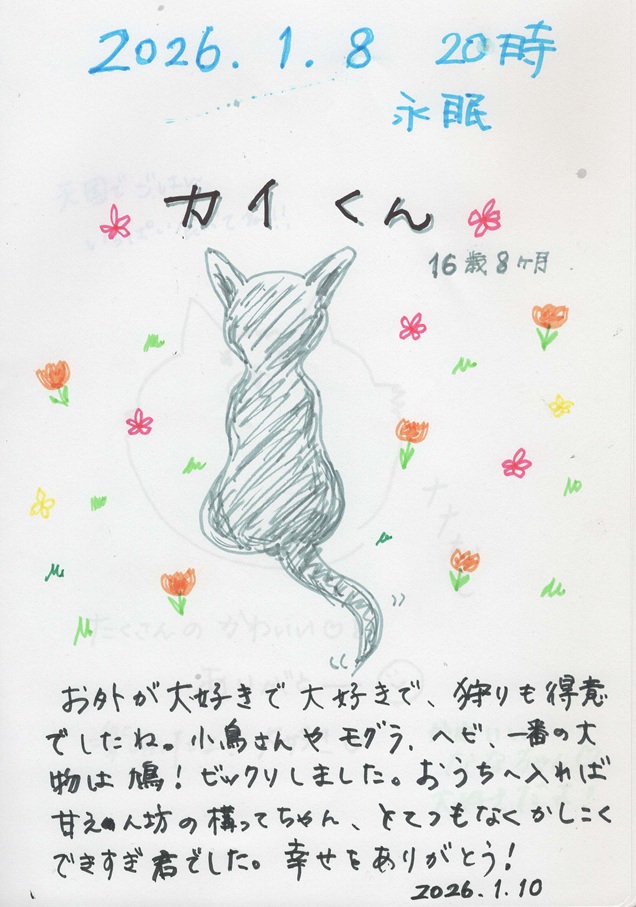 2026.1.8 20時
永眠
カイくん
16歳8ヶ月
お外が大好きで大好きで、狩りも得意
でしたね。小鳥さんやモグラ、ヘビ、一番の大
物は鳩!ビックリしました。おうちへ入れば
甘えん坊の構ってちゃん、とてつもなくかしこく
できすぎ君でした。幸せをありがとう!
2026.1.10